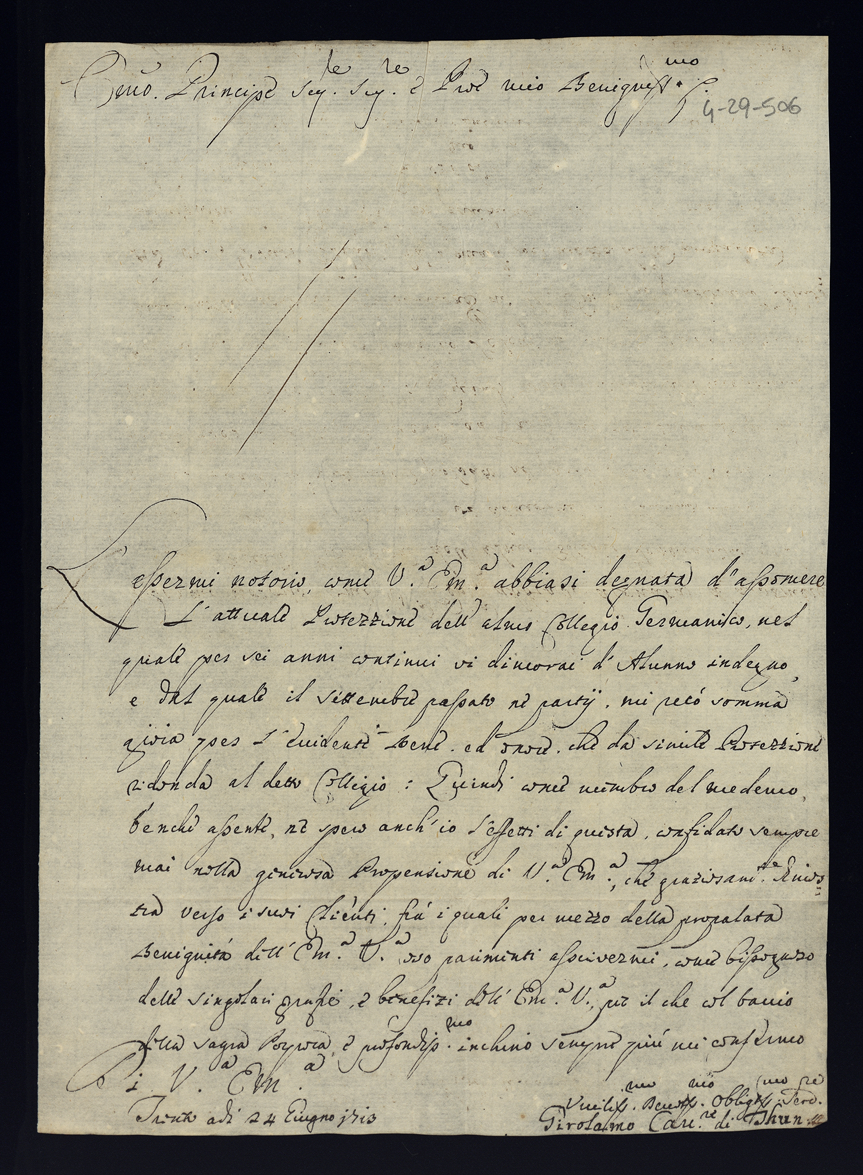 Emo. Principe Sig.re Sig.re e Prone mio Benigniss.mo
4-29-506
L'essermi notorio, come V.a Em.a abbiasi degnata d'assomere
L'attuale Protezzione dell'almo Collegio Germanico, nel
quale per sei anni continui vi dimorai d'Alunno indegno,
e dal quale il Settembre passato ne partij, mi recò somma
gioia per l'evidente bene, ed onore, che da simile Protezzione
ridonda al detto Collegio: Quindi come membro del medemo,
benche assente, ne spero anch'io l'effetti di questa, confidato sempre
mai nella generosa Propensione di V.a Em.a, che graziosam.te dimos=
tra verso i suoi Clienti, frà i quali per mezzo della propalata
Benignità dell'Em.a V.a oso parimenti ascrivermi, come bisognoso
delle singolari grazie, e benefizi dell'Em.a V.a, per il che col bacio
della sagra Porpora, e profondiss.mo inchino sempre più mi confermo
Di V.a Em.a
Trento adi 24 Giugno 1713
Umiliss.mo Devotiss.mo Obligatiss.mo Serv.re
Girolamo Can.re di Thun